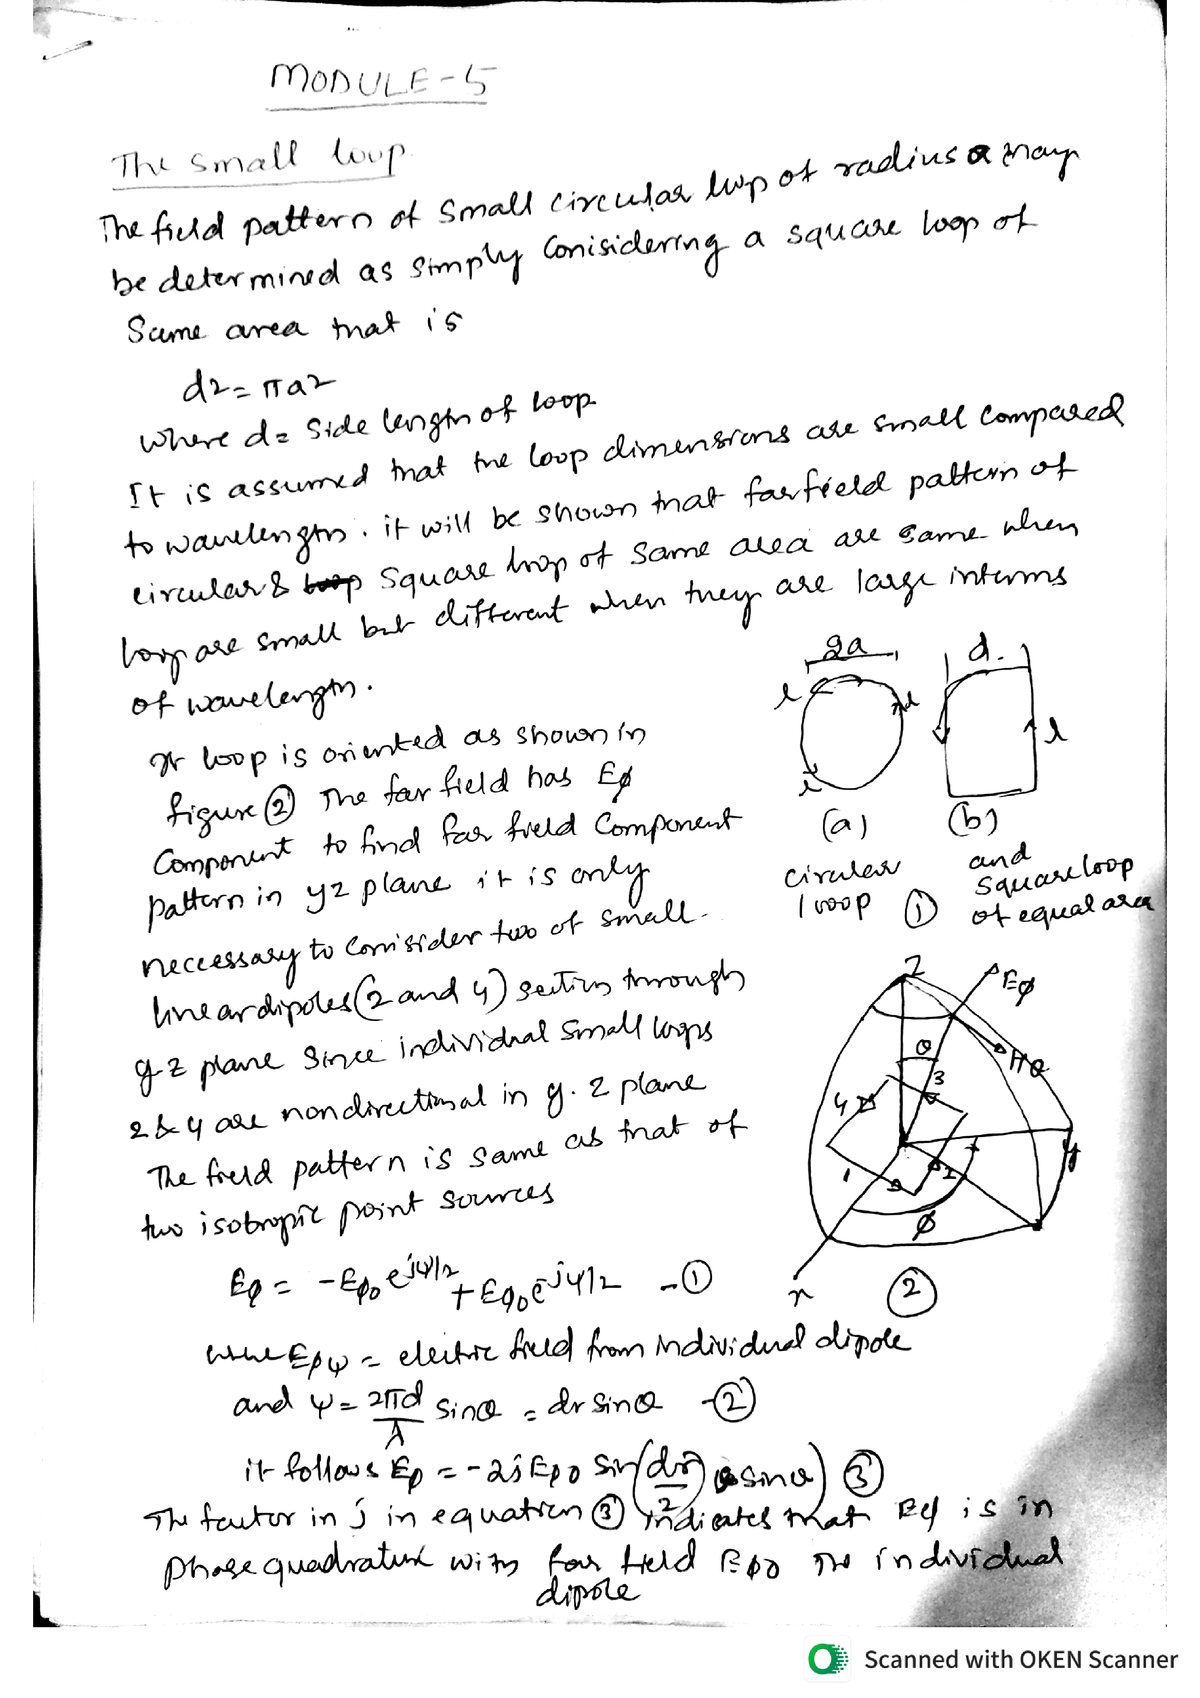 MODULE-5
The small loop
The field pattern of small circular loop of radius a may
be determined as simply Conisidering a square loop of
Same area that is
d2 = πa2
where d = Side length of loop
It is assumed that the loop dimensions are small compared
to wavelength. it will be shown that farfield pattern of
circular & loop square loop of same area are same when
loop are small but different when they are large interms
of wavelength.
If loop is oriented as shown in
figure ② The far field has Eφ
Component to find far field Component
pattern in yz plane it is only
neccessary to Connsider two of small
linear dipoles (2 and 4) section through
y-z plane since individual small loops
2 & 4 are nondirectional in y. z plane
The field pattern is same as that of
two isotropic point sources
2a
d.
i
i
i
i
(a)
(b)
circular loop
①
and
Square loop
of equal area
Z
Eφ
θ
Hθ
3
4
y
1
2
φ
x
②
Eφ = -Eφ0 e^jψ/2 + Eφ0 e^-jψ/2 -①
where Eφψ = electric field from individual dipole
and ψ = 2πd/λ sinθ = dr sinθ -②
it follows Eφ = -2j Eφ0 sin(dr/2 sinθ) ③
The factor in j in equation ③ indicates that Eφ is in
phase quadrature with far field Eφ0 The individual
dipole
Scanned with OKEN Scanner